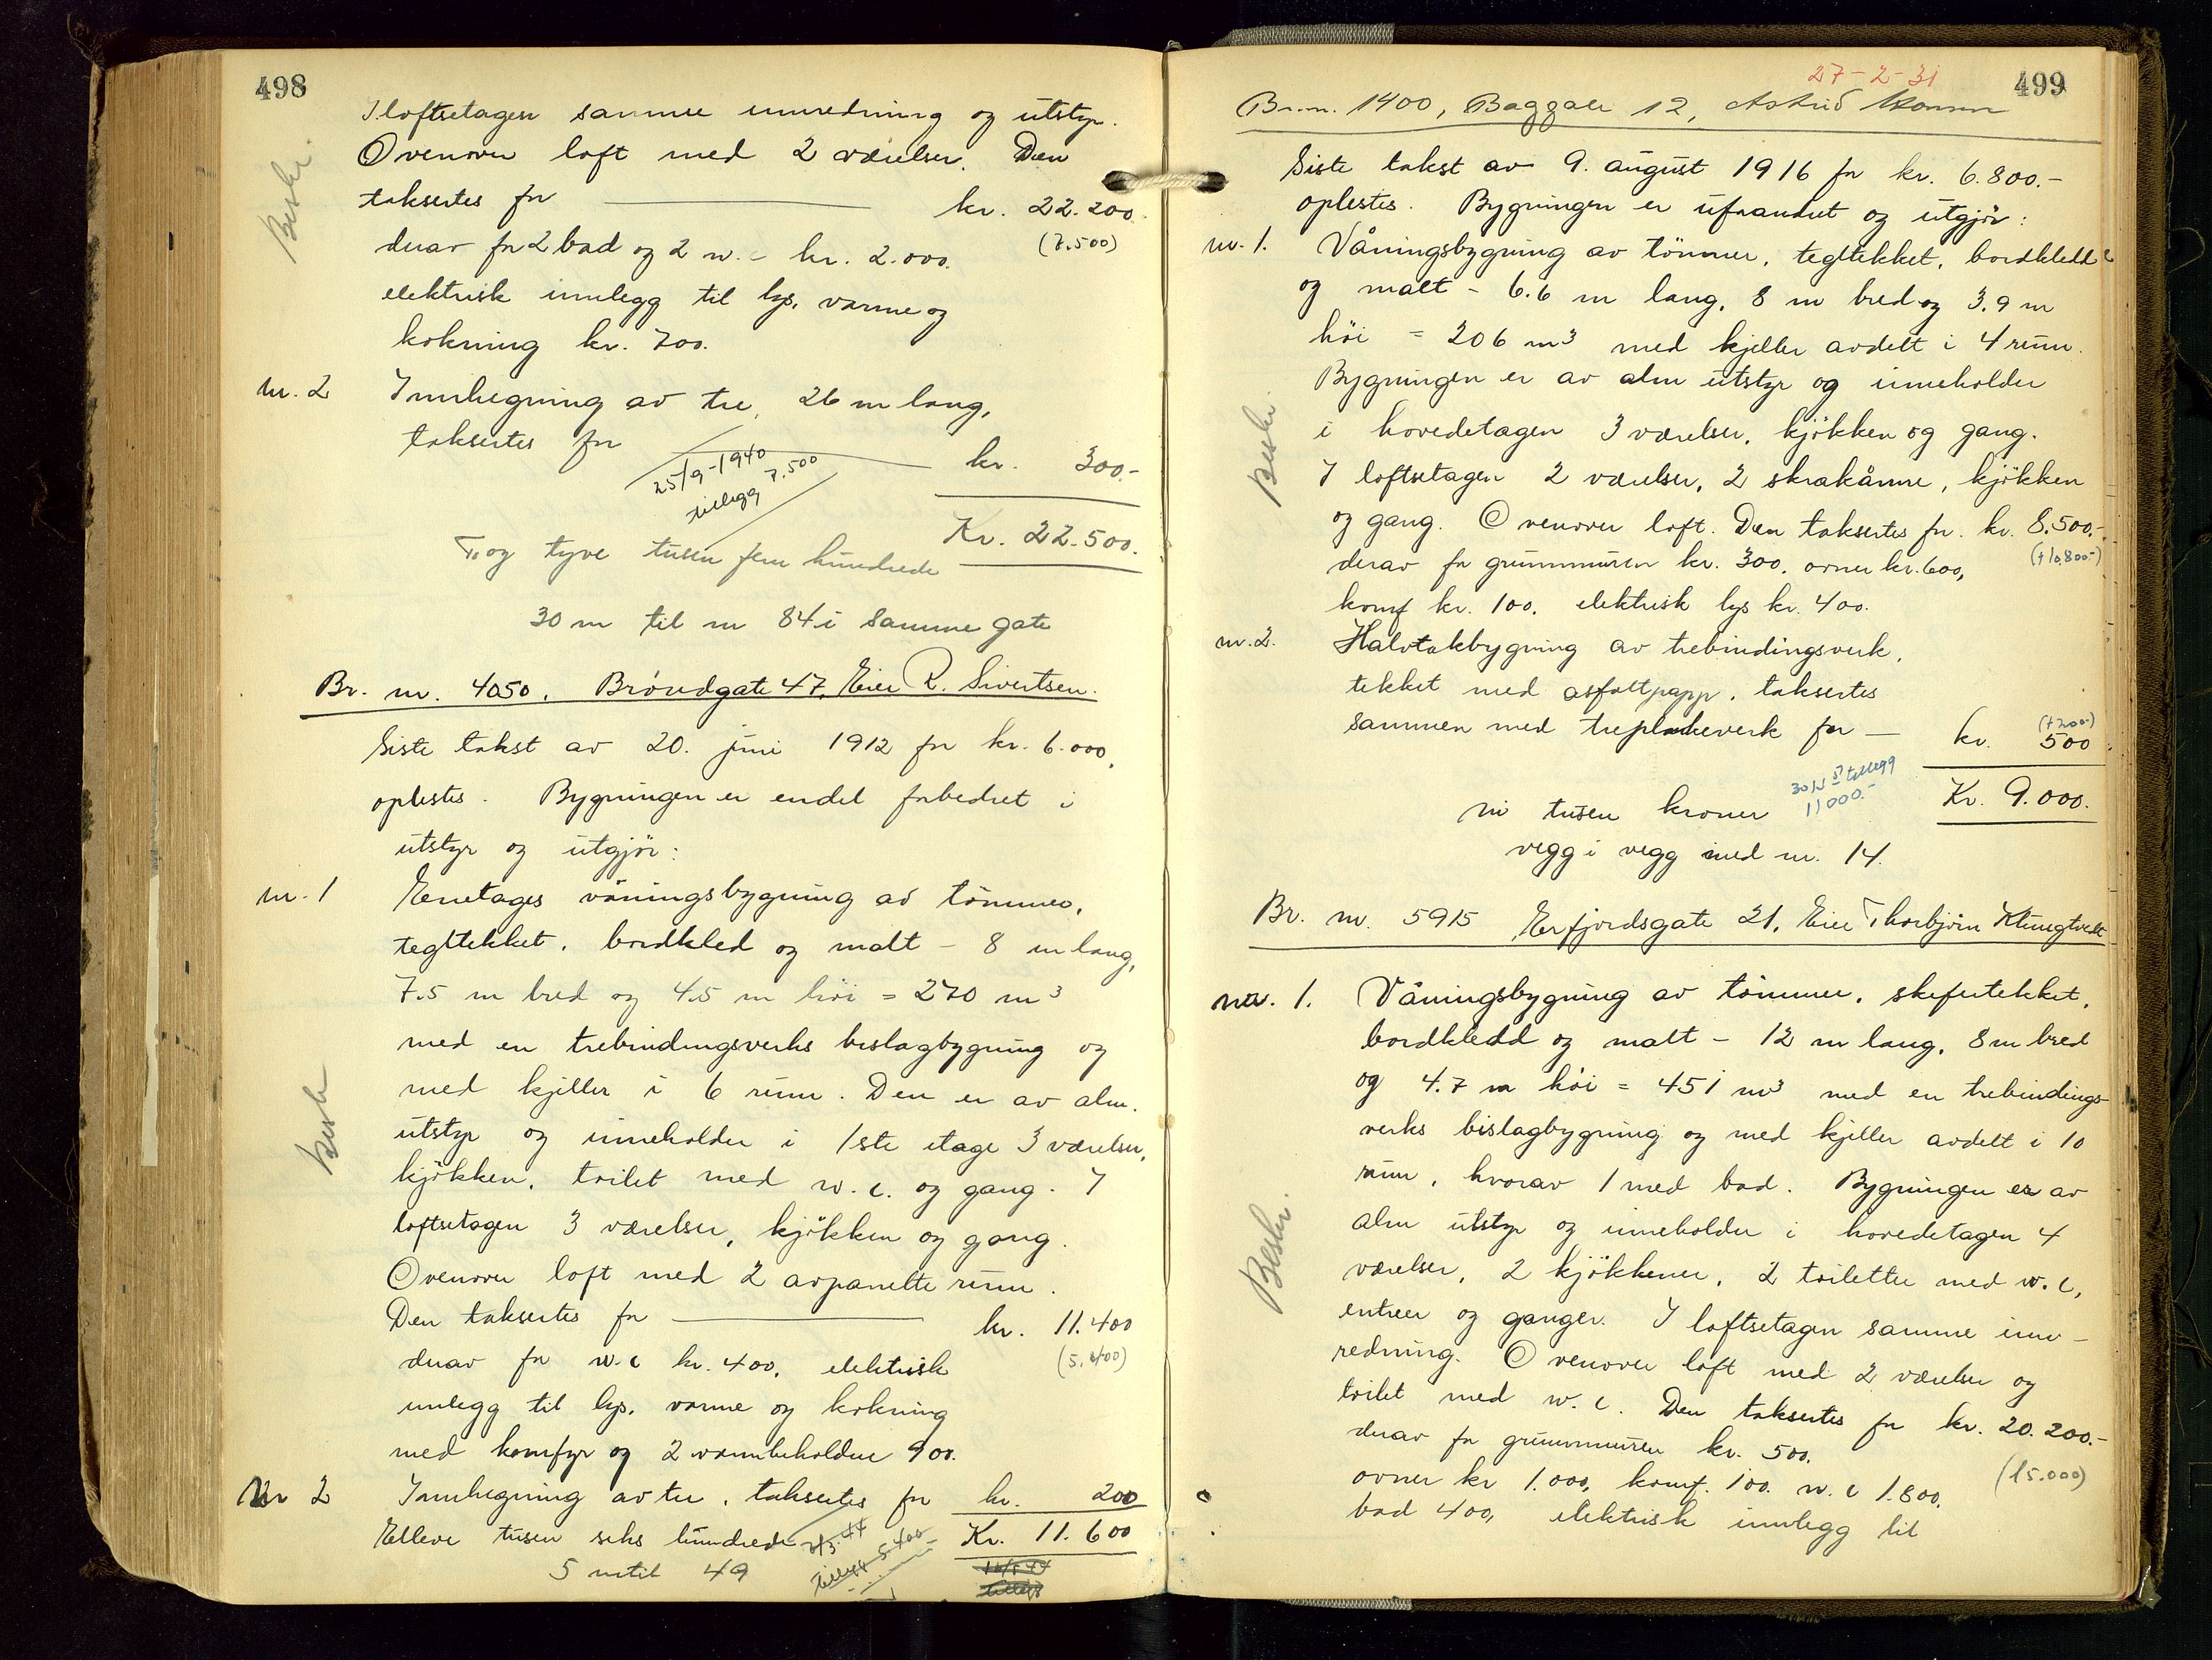 498
I loftsetagen samme innredning og utstyr.
Ovenover loft med 2 værelser. Den
taksertes for kr. 22.200.
(7.500)
derav for 2 bad og 2 w.c kr. 2.000.
elektrisk innlegg til lys, varme og
kokning kr. 700.
Beskr.
nr. 2 Innhegning av tre, 26 m lang,
taksertes for kr. 300.-
25/9-1940
tillegg 7.500
Kr. 22.500.
To og tyve tusen fem hundrede
30 m til nr 84 i samme gate
Br. nr. 4050. Bröndgate 47, Eier R. Sivertsen.
Siste takst av 20. juni 1912 for kr. 6.000,
oplestes. Bygningen er endel forbedret i
utstyr og utgjör:
nr. 1 Enetages våningsbygning av tömmer,
tegltekket, bordkled og malt - 8 m lang,
7.5 m bred og 4.5 m höi = 270 m3
med en trebindingsverks bislagbygning og
med kjeller i 6 rum. Den er av alm.
utstyr og inneholder i 1ste etage 3 værelser,
kjökken, toilet med w.c. og gang. I
loftsetagen 3 værelser, kjökken og gang.
Ovenover loft med 2 avpanelte rum.
Beskr
Den taksertes for kr. 11.400
(5.400)
derav for w.c kr. 400, elektrisk
innlegg til lys, varme og kokning
med komfyr og 2 varmbeholdere 900.
Nr 2 Innhegning av tre, taksertes for kr. 200
Elleve tusen seks hundrede Kr. 11.600
tillegg 5.400
5 m til 49
27-2-31
499
Br.nr. 1400, Baggate 12, Astrid
Siste takst av 9. august 1916 for kr. 6.800.-
oplestes. Bygningen er uforandret og utgjör:
nr. 1. Våningsbygning av tömmer, tegltekket, bordkledd
og malt - 6.6 m lang, 8 m bred og 3.9 m
höi = 206 m3 med kjeller avdelt i 4 rum.
Bygningen er av alm utstyr og inneholder
i hovedetagen 3 værelser, kjökken og gang.
I loftsetagen 2 værelser, 2 skrakåmre, kjökken
og gang. Ovenover loft. Den taksertes for kr. 8.500,-
(+10.800-)
derav for grunnmuren kr. 300, ovner kr. 600,
komf kr. 100. elektrisk lys kr. 400.
Beskr.
nr. 2. Halvtakbygning av trebindingsverk,
tekket med asfaltpapp, taksertes
sammen med treplankeverk for kr. 500
(+200-)
tillegg
11000.-
Kr. 9.000.
ni tusen kroner
vegg i vegg med nr. 14.
Br. nr. 5915 Erfjordsgate 21, Eier Thorbjörn Klungtvedt
nr. 1. Våningsbygning av tömmer, skifertekket,
bordkledd og malt - 12 m lang, 8 m bred
og 4.7 m höi = 451 m3 med en trebindings-
verks bislagbygning og med kjeller avdelt i 10
rum, hvorav 1 med bad. Bygningen er av
alm utstyr og inneholder i hovedetagen 4
værelser, 2 kjökkener, 2 toiletter med w.c,
entreer og ganger. I loftsetagen samme inn-
redning. Ovenover loft med 2 værelser og
toilet med w.c. Den taksertes for kr. 20.200.-
derav for grunnmuren kr. 500.
(15.000)
ovner kr 1.000, komf. 100. w.c 1.800,
bad 400, elektrisk innlegg til
Beskr.